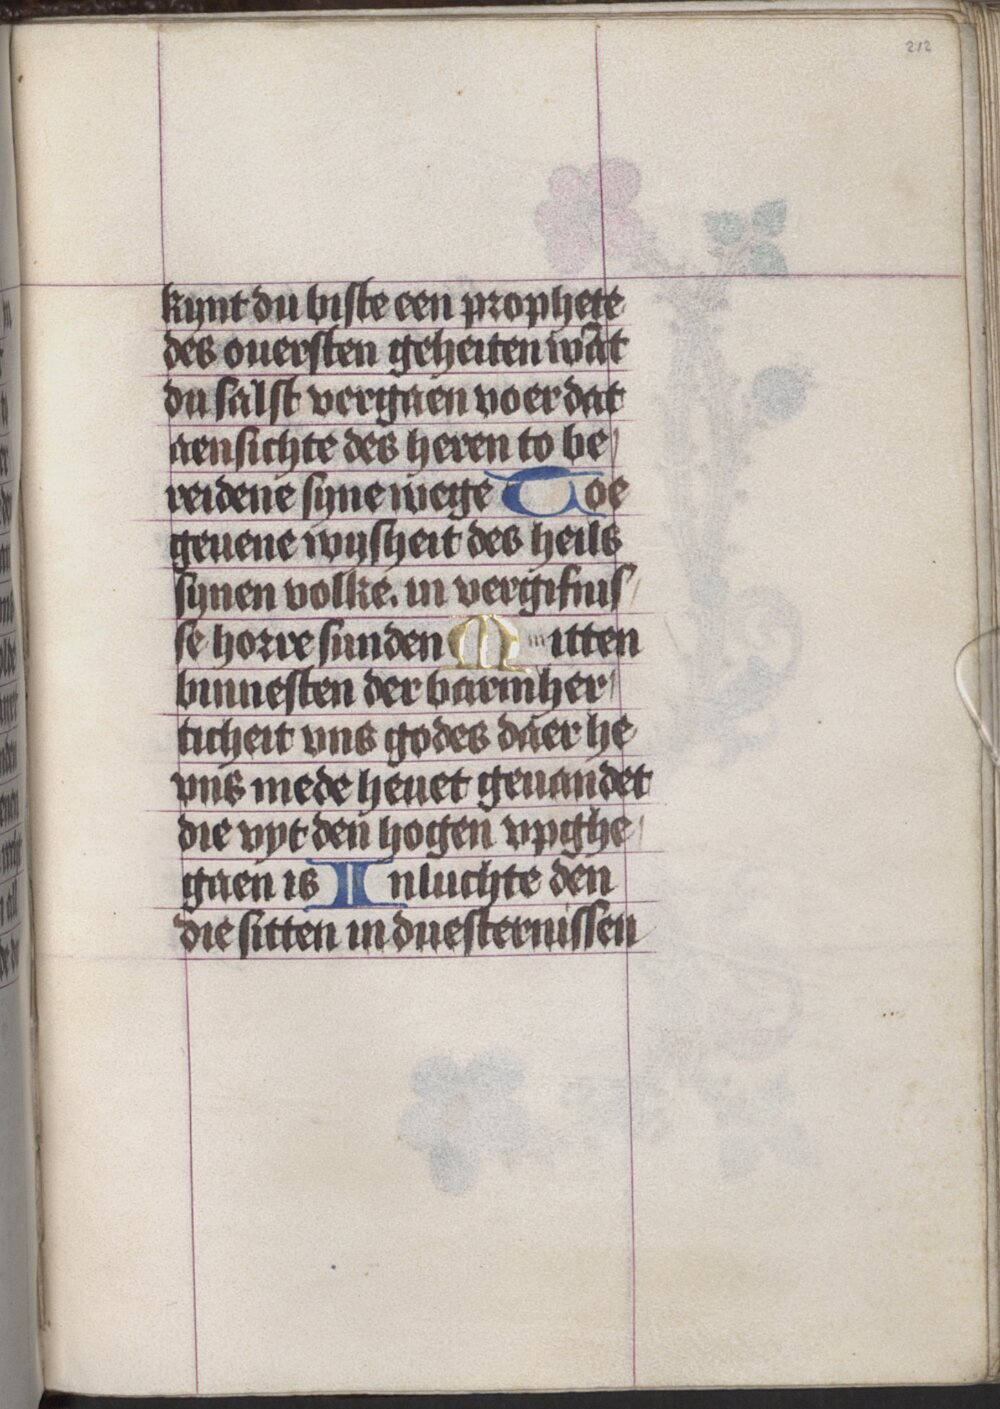 212
kynt du biste een prophete
des ouersten geheiten wāt
du salst vergaen voer dat
aensichte des heren to be/
reidene syne wege Toe
geuene wysheit des heils
synen volke. in vergifnis/
se horre sunden Mitten
binnesten der barmher/
ticheit vns godes daer he
vns mede heuet geuandet
die vyt den hogen vpghe/
gaen is Inluchte den
die sitten in duesternissen